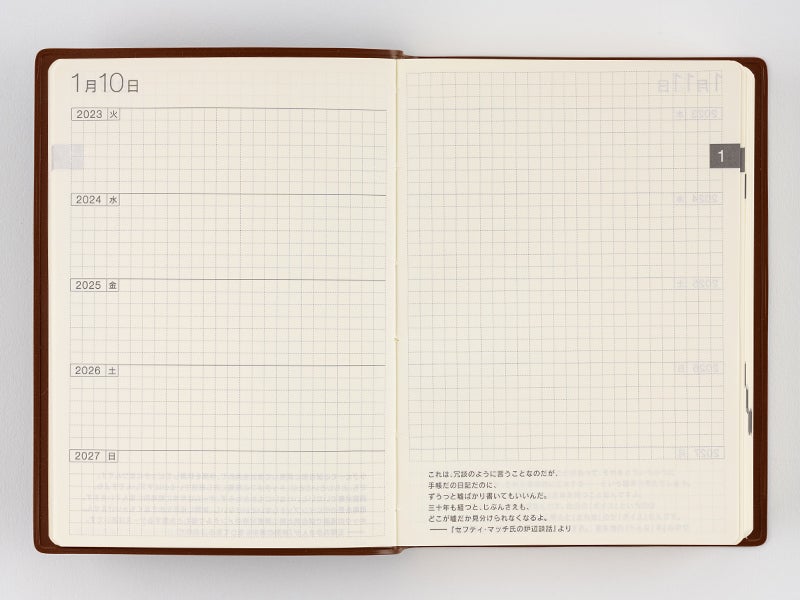 1月10日
2023 火
2024 水
2025 金
2026 土
2027 日
1
これは、冗談のように言うことなのだが、
手帳だの日記だのに、
ずうっと嘘ばかり書いてもいいんだ。
三十年も経つと、じぶんさえも、
どこが嘘だか見分けられなくなるよ。
──『セフティ・マッチ氏の炉辺談話』より